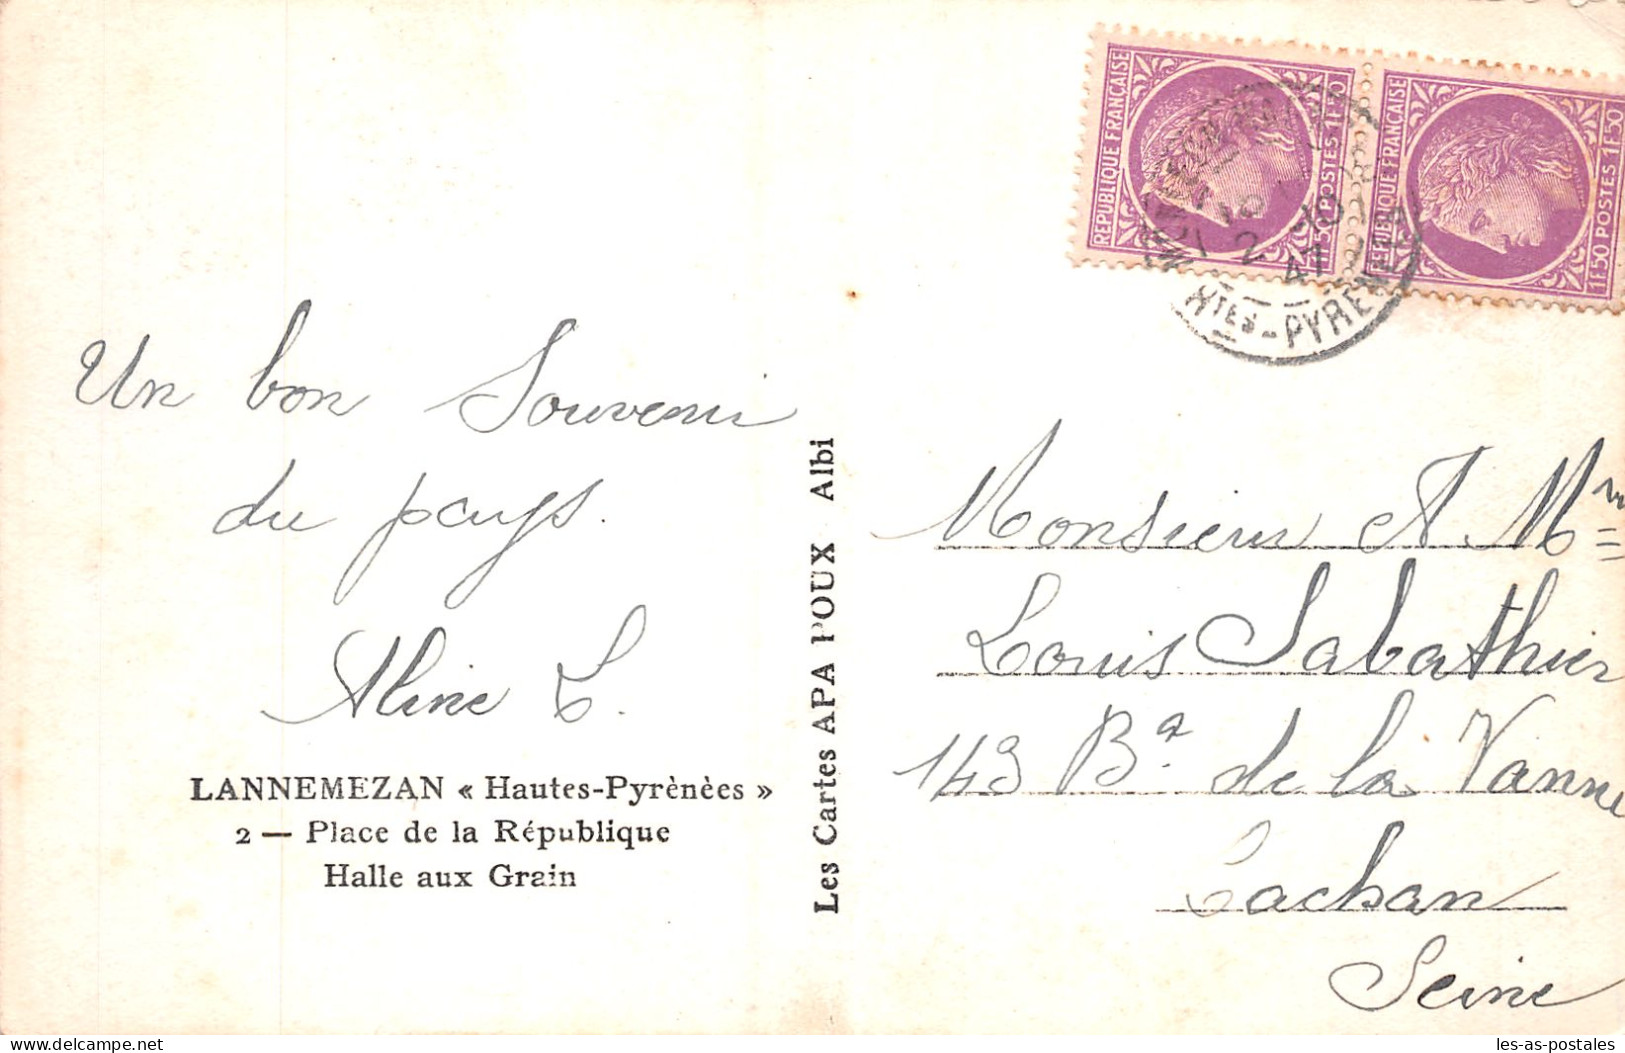 Un bon Souvenir
du pays.
Aline L.
LANNEMEZAN « Hautes-Pyrènèes »
2 — Place de la République
Halle aux Grain
Les Cartes APA POUX Albi
REPUBLIQUE FRANÇAISE
1F50 POSTES 1F50
REPUBLIQUE FRANÇAISE
1F50 POSTES 1F50
2 - 10
47
HTES-PYRENEES
Monsieur et Mme
Louis Sabathier
143 Bd de la Vanne
Cachan
Seine
delcampe.net
les-as-postales